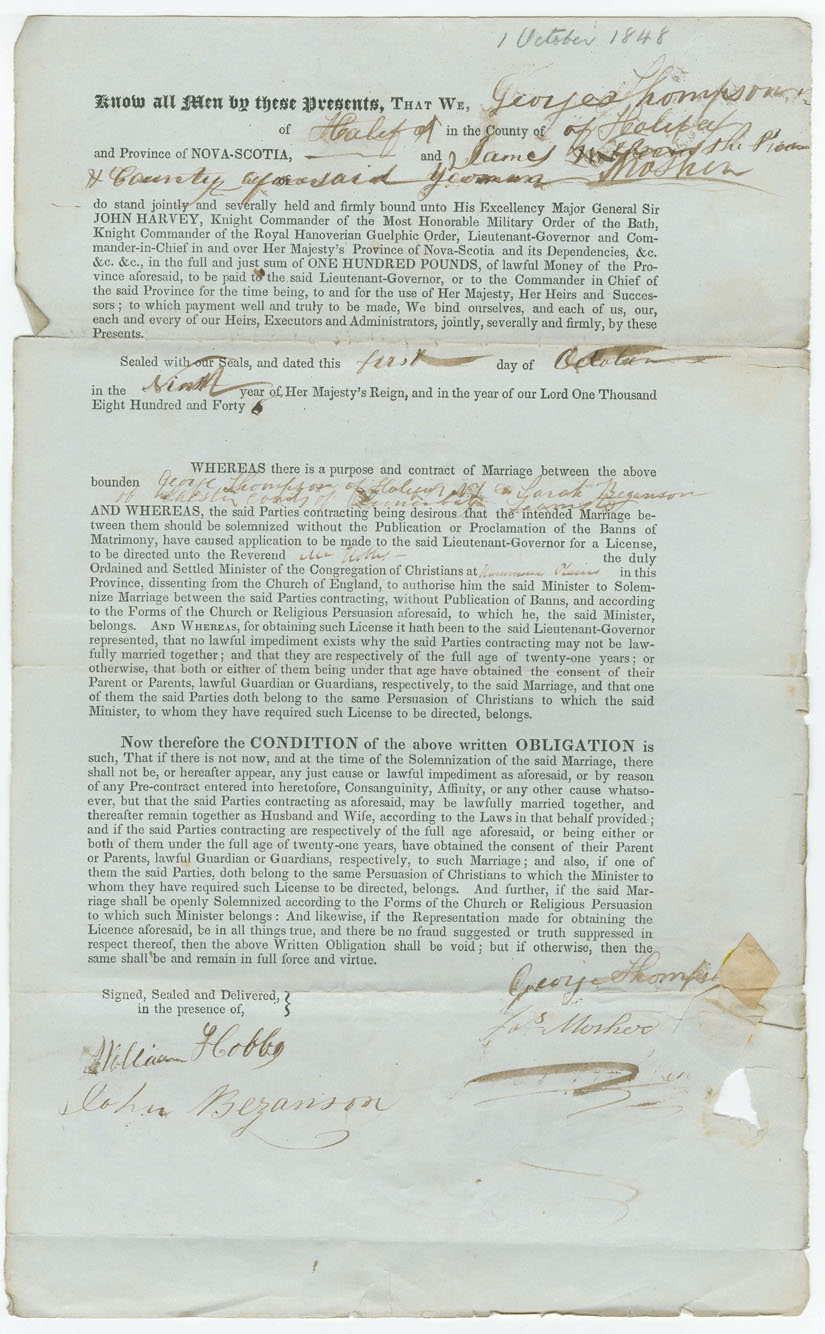 1 October 1848
Know all Men by these Presents, THAT WE, George Thompson
of Halifax in the County of of Halifax
and Province of NOVA-SCOTIA, and James the
& County aforesaid Yeoman Mosher
do stand jointly and severally held and firmly bound unto His Excellency Major General Sir
JOHN HARVEY, Knight Commander of the Most Honorable Military Order of the Bath,
Knight Commander of the Royal Hanoverian Guelphic Order, Lieutenant-Governor and Com-
mander-in-Chief in and over Her Majesty's Province of Nova-Scotia and its Dependencies, &c.
&c. &c., in the full and just sum of ONE HUNDRED POUNDS, of lawful Money of the Pro-
vince aforesaid, to be paid to the said Lieutenant-Governor, or to the Commander in Chief of
the said Province for the time being, to and for the use of Her Majesty, Her Heirs and Succes-
sors; to which payment well and truly to be made, We bind ourselves, and each of us, our,
each and every of our Heirs, Executors and Administrators, jointly, severally and firmly, by these
Presents.
Sealed with our Seals, and dated this first day of October
in the Ninth year of Her Majesty's Reign, and in the year of our Lord One Thousand
Eight Hundred and Forty
WHEREAS there is a purpose and contract of Marriage between the above
bounden George Thompson of Halifax & Sarah Bezanson
of Chester County of
AND WHEREAS, the said Parties contracting being desirous that the intended Marriage be-
tween them should be solemnized without the Publication or Proclamation of the Banns of
Matrimony, have caused application to be made to the said Lieutenant-Governor for a License,
to be directed unto the Reverend Mr Hobbs the duly
Ordained and Settled Minister of the Congregation of Christians at in this
Province, dissenting from the Church of England, to authorise him the said Minister to Solem-
nize Marriage between the said Parties contracting, without Publication of Banns, and according
to the Forms of the Church or Religious Persuasion aforesaid, to which he, the said Minister,
belongs. AND WHEREAS, for obtaining such License it hath been to the said Lieutenant-Governor
represented, that no lawful impediment exists why the said Parties contracting may not be law-
fully married together; and that they are respectively of the full age of twenty-one years; or
otherwise, that both or either of them being under that age have obtained the consent of their
Parent or Parents, lawful Guardian or Guardians, respectively, to the said Marriage, and that one
of them the said Parties doth belong to the same Persuasion of Christians to which the said
Minister, to whom they have required such License to be directed, belongs.
Now therefore the CONDITION of the above written OBLIGATION is
such, That if there is not now, and at the time of the Solemnization of the said Marriage, there
shall not be, or hereafter appear, any just cause or lawful impediment as aforesaid, or by reason
of any Pre-contract entered into heretofore, Consanguinity, Affinity, or any other cause whatso-
ever, but that the said Parties contracting as aforesaid, may be lawfully married together, and
thereafter remain together as Husband and Wife, according to the Laws in that behalf provided;
and if the said Parties contracting are respectively of the full age aforesaid, or being either or
both of them under the full age of twenty-one years, have obtained the consent of their Parent
or Parents, lawful Guardian or Guardians, respectively, to such Marriage; and also, if one of
them the said Parties, doth belong to the same Persuasion of Christians to which the Minister to
whom they have required such License to be directed, belongs. And further, if the said Mar-
riage shall be openly Solemnized according to the Forms of the Church or Religious Persuasion
to which such Minister belongs: And likewise, if the Representation made for obtaining the
Licence aforesaid, be in all things true, and there be no fraud suggested or truth suppressed in
respect thereof, then the above Written Obligation shall be void; but if otherwise, then the
same shall be and remain in full force and virtue.
George Thompso
Signed, Sealed and Delivered,
in the presence of,
Jas Mosher
William Hobbs
John Bezanson